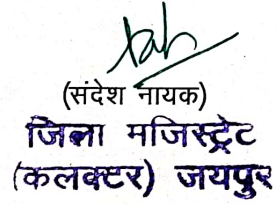 (संदेश नायक)
जिला मजिस्ट्रेट
(कलक्टर) जयपुर